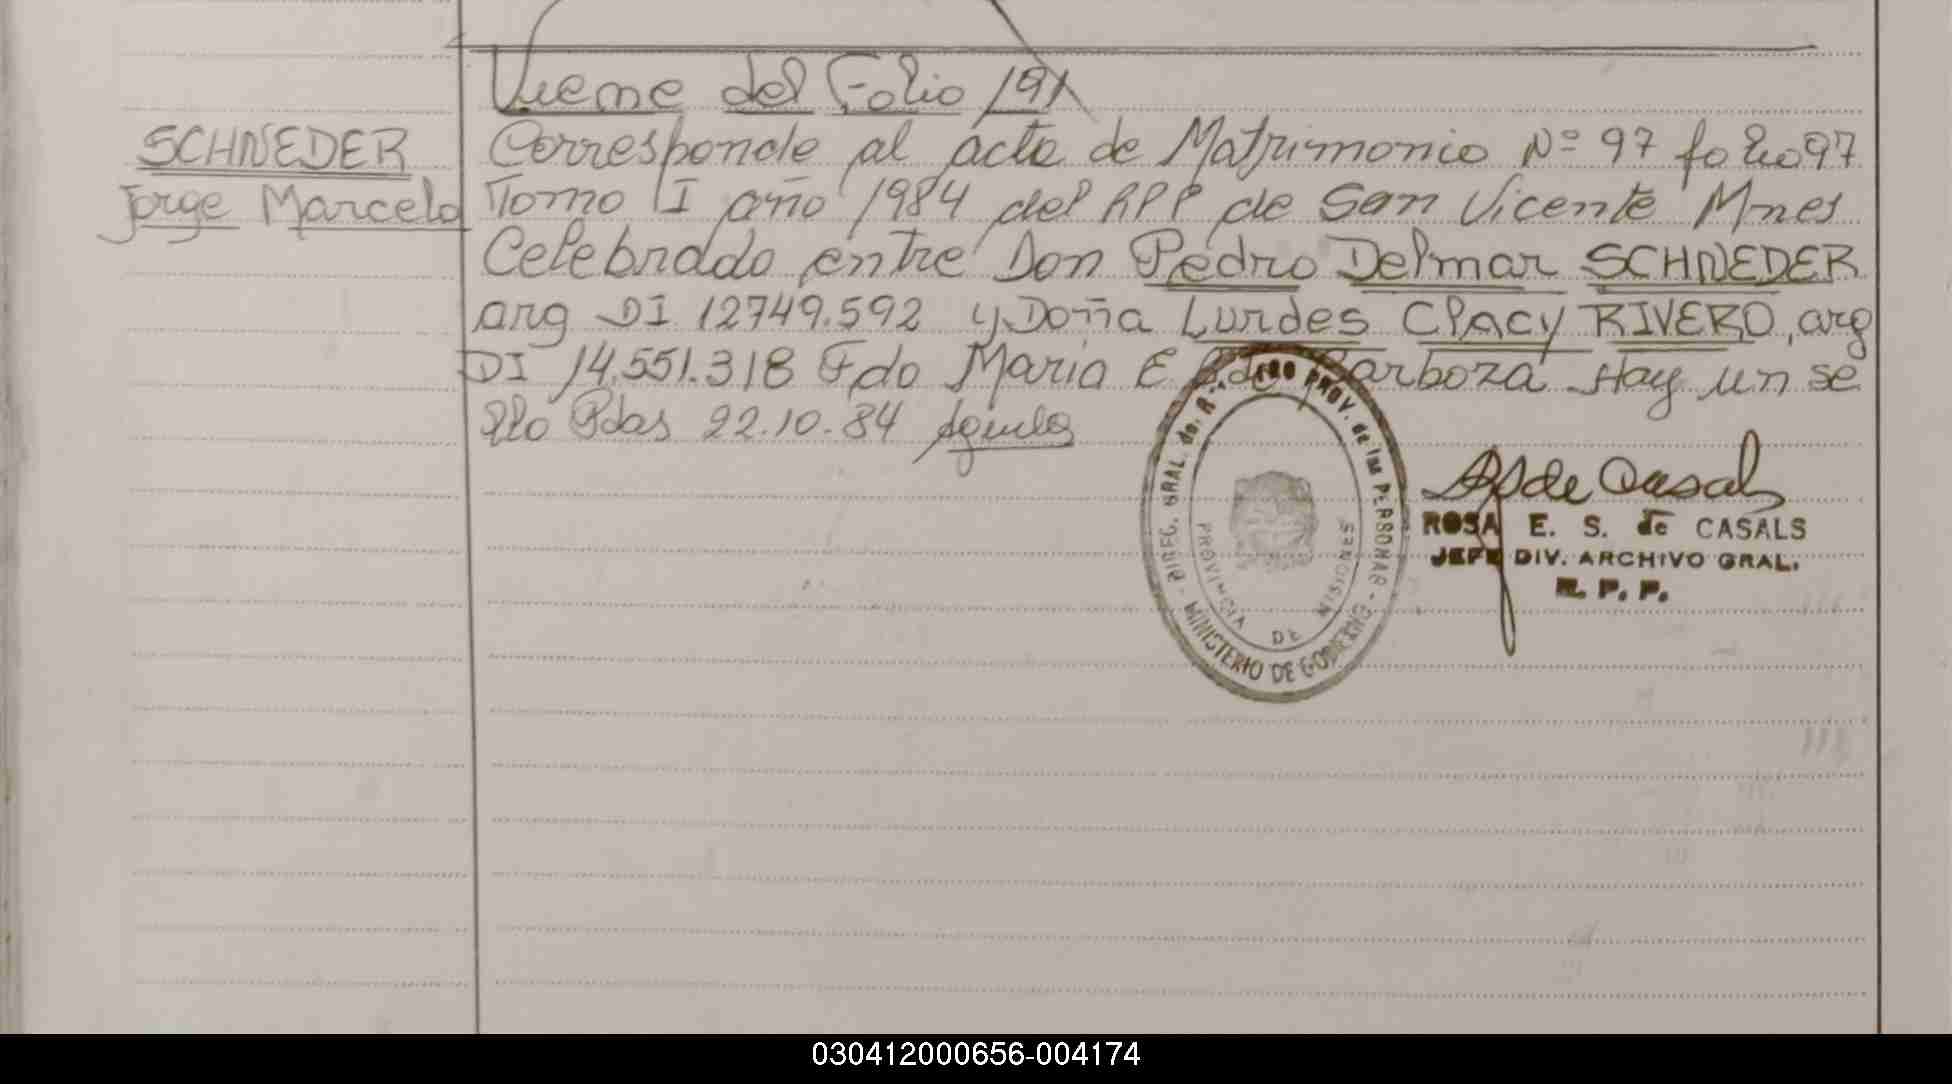 Viene del Folio 191
SCHNEDER
Jorge Marcelo
Corresponde al acta de Matrimonio Nº 97 folio 97
Tomo I año 1984 del RPP de San Vicente Mnes
Celebrado entre Don Pedro Delmar SCHNEDER
arg DI 12749.592 y Doña Lurdes Clacy RIVERO, arg
DI 14.551.318 Fdo Maria E de Barboza Hay un se
llo Pdas 22.10.84
DIREC. GRAL. de PROV. de las PERSONAS - MINISTERIO DE GOBIERNO -
PROVINCIA DE MISIONES
de Casals
ROSA E. S. de CASALS
JEFE DIV. ARCHIVO GRAL.
R. P. P.
030412000656-004174